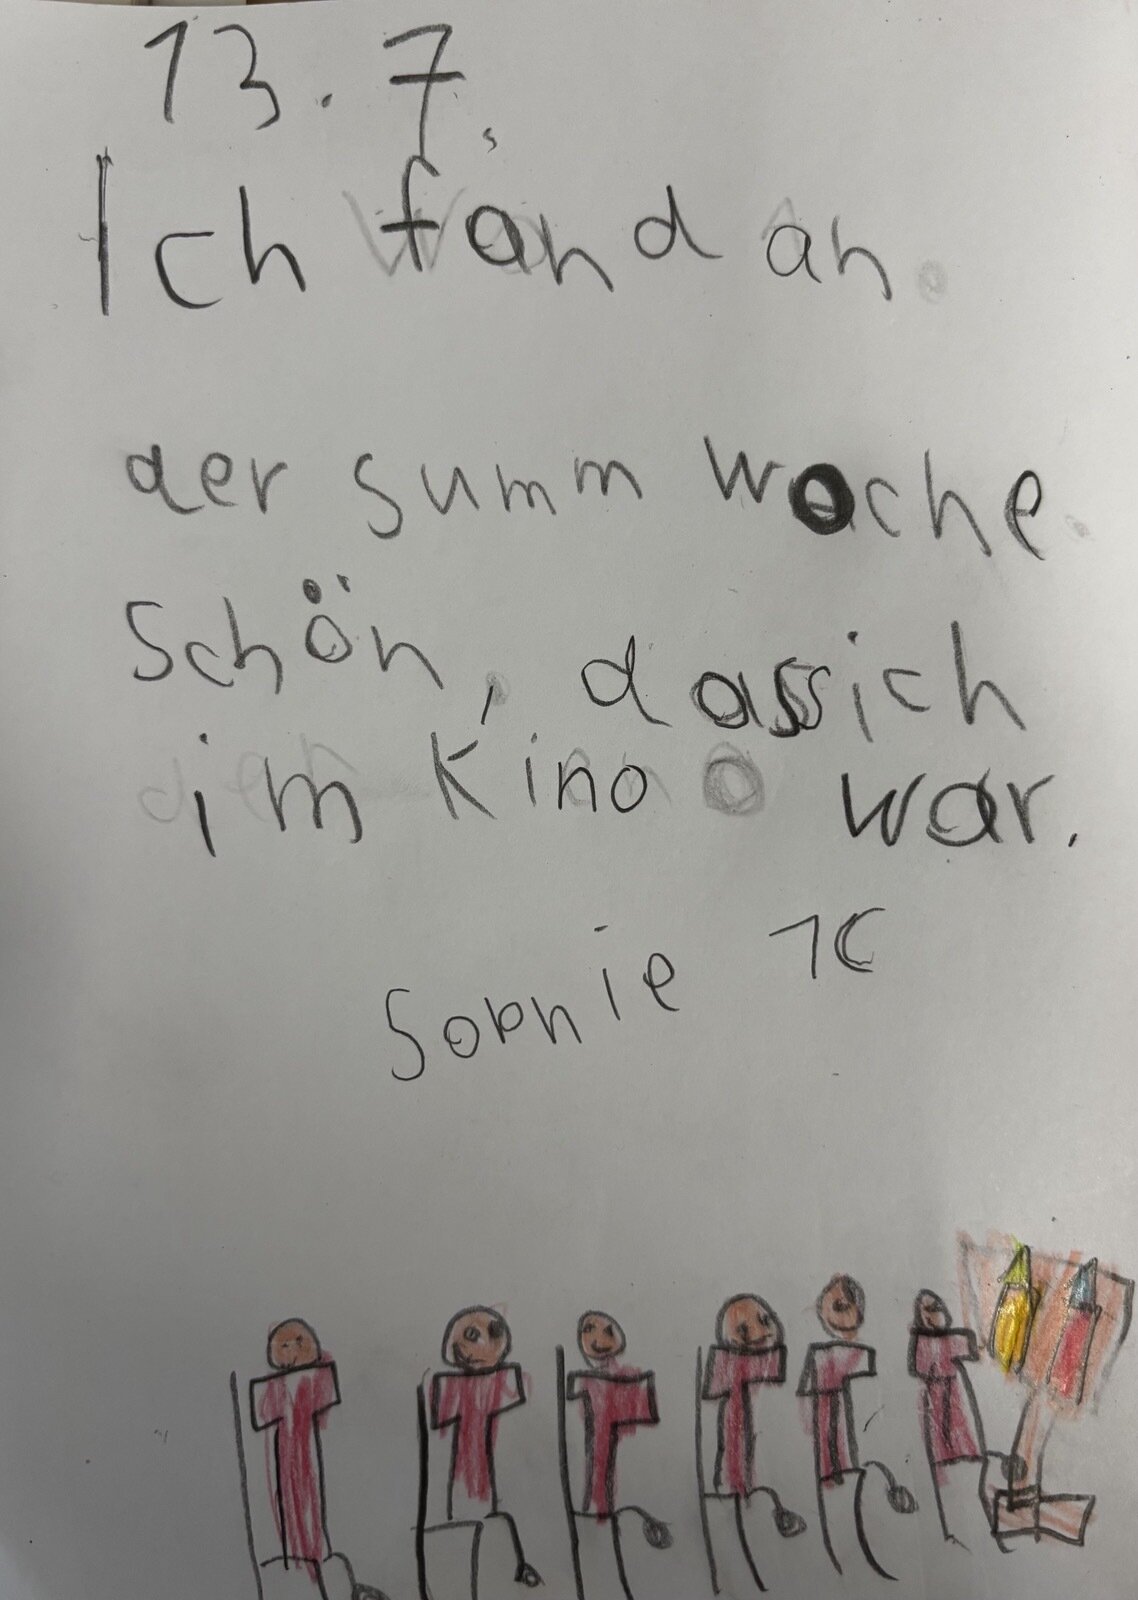 13.7.
Ich fand an
der summ woche
schön, dassich
im Kino war.
Sophie 1C